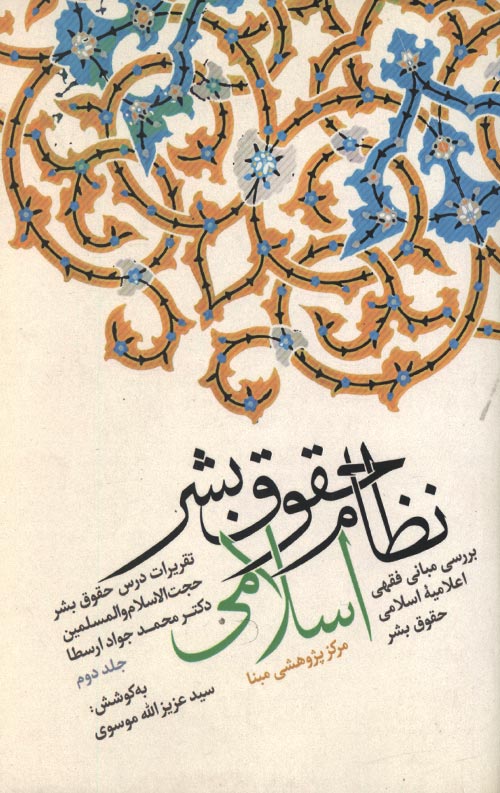 نظام حقوق بشر
اسلامی
بررسی مبانی فقهی
اعلامیهٔ اسلامی
حقوق بشر
مرکز پژوهشی مبنا
تقریرات درس حقوق بشر
حجت‌الاسلام‌والمسلمین
دکتر محمد جواد ارسطا
جلد دوم
به‌کوشش:
سید عزیزالله موسوی